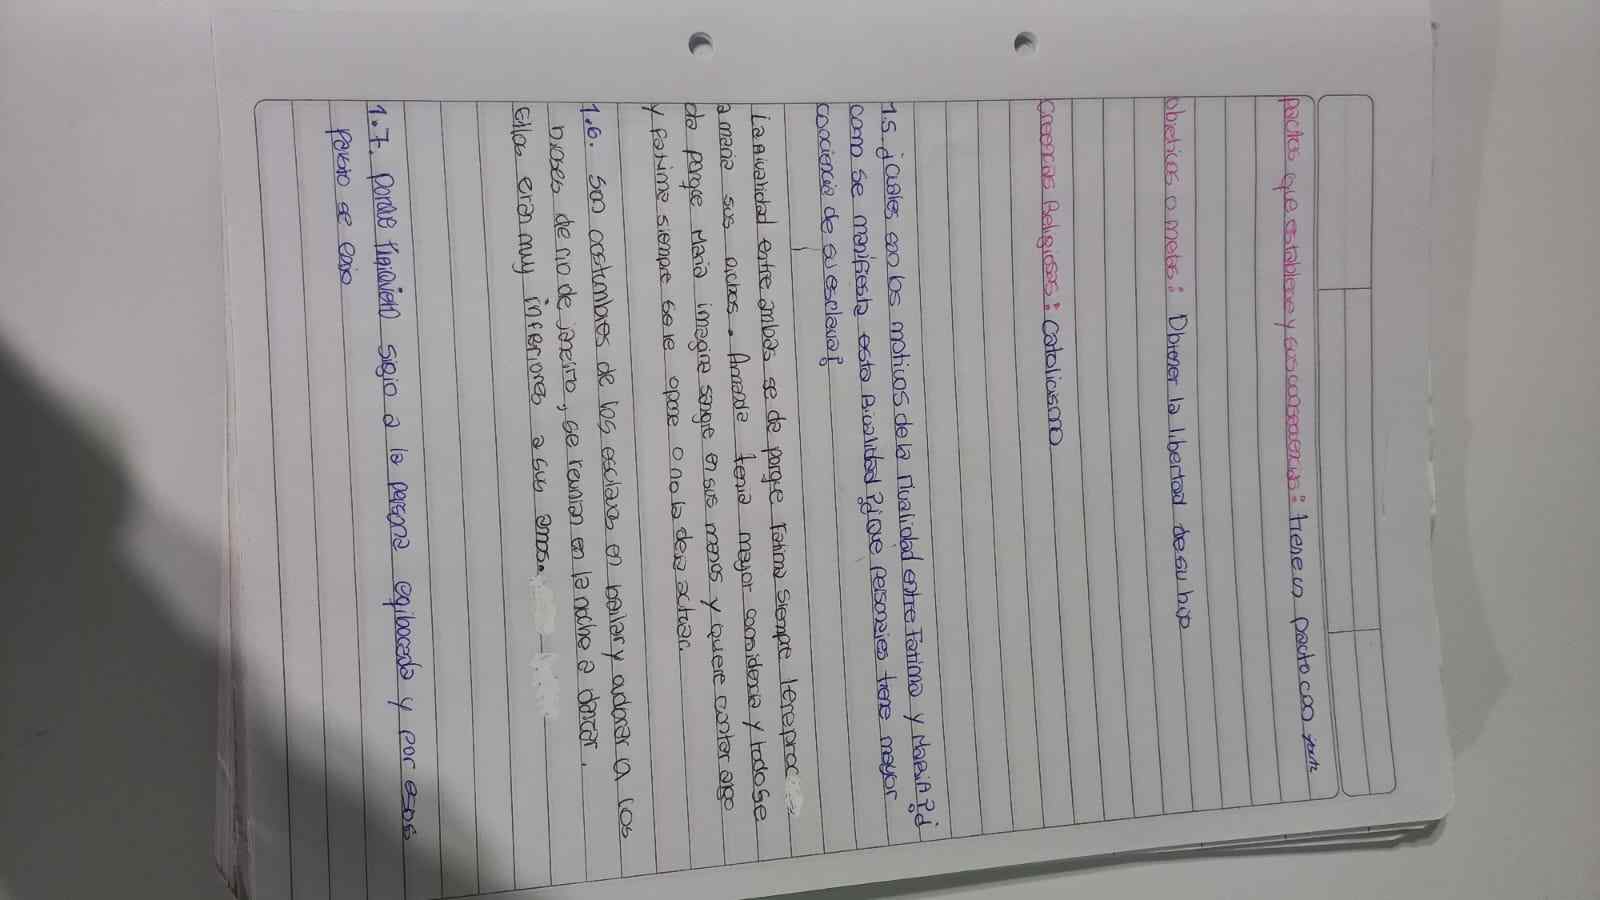 pactos que establece y sus consecuencias: tiene un pacto con
objeticos o metas: Obtener la libertad de su hijo
Creencias Religiosas: catolicismo
1.5. ¿cuales son los moticos de la Rivalidad entre Fatima y MARIA?¿
como se manifiesta esta Rivalidad?¿que personajes tiene mayor
conciencia de su esclava?
La Rivalidad entre ambas se da porque Fatima siempre le reproc
a maria sus actos. Amanda tenia mayor considencia y todo se
da porque Maria imagina sangre en sus manos y quiere contar algo
y Fatima siempre se le opone o no la deja actuar.
1.6. son costumbres de los esclavos en bailar y adorar a los
bioses de rio de janeiro, se reunian en la noche a danzar.
Ellos eran muy inferiores a sus amos.
1.7. porque siguio a la persona eqibocada y por esos